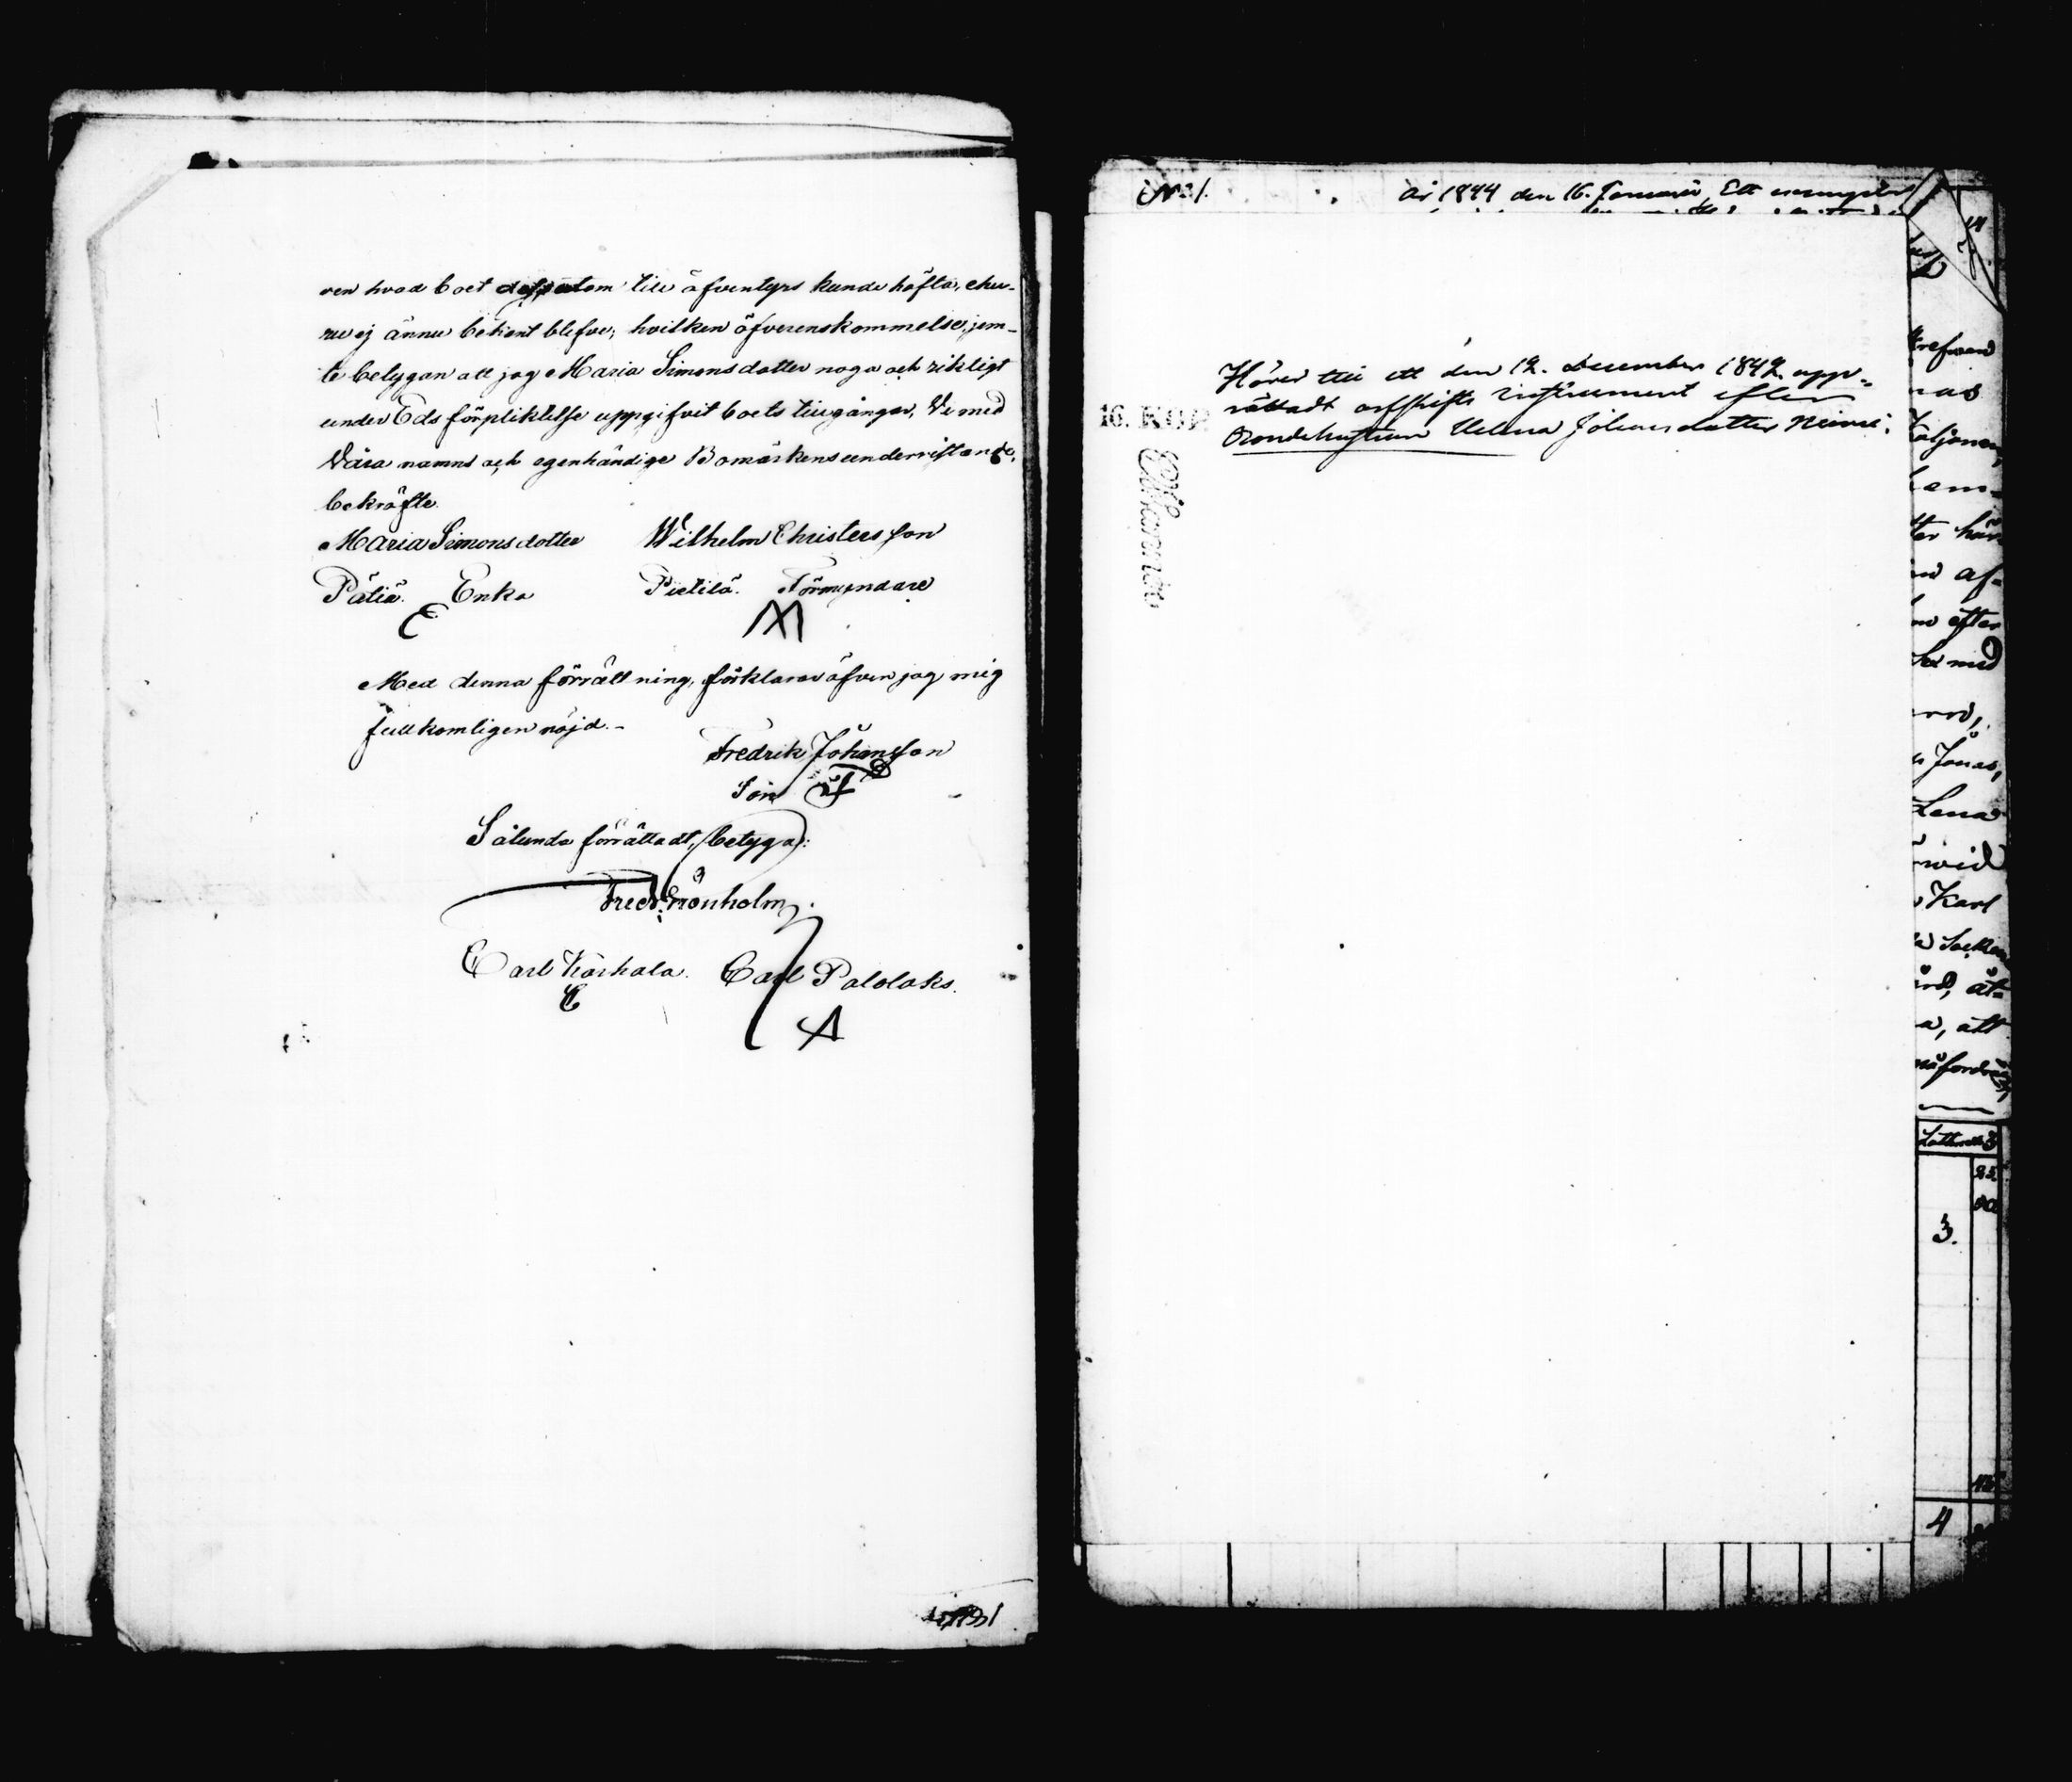 ven hvad boet dessutom till äfventyrs kunde häfta, ehu-
ru ej ännu bekant blefve; hvilken öfverenskommelse, jem-
te betygan att jag Maria Simonsdotter noga och riktigt
under Eds förpliktelse uppgifvit boets tillgångar, Vi med
Våra namns och egenhändige Bomärkens underristande,
bekräfte.
Maria Simonsdotter Wilhelm Christersson
Pätiä. Enka Pietilä. Förmyndare
Med denna förrättning, förklarar äfven jag mig
fullkomligen nöjd.-
Fredrik Johansson
Son
Sålunda förrättadt, betyga:
Fredr. Grönholm.
Carl Karhala. Carl Palolaks.
No 21. År 1844 den 16. Januarii, Ett exemplar
Hörer till ett den 12. December 1842 upp-
rättadt arfskifts instrument efter
Bondehustrun Helena Johansdotter Neimi.
16. KOP
nas
Taljonen,
ter här
af-
efter
med
Jonas,
Lena
Karl
Socken
åt-
a, att
3.
4